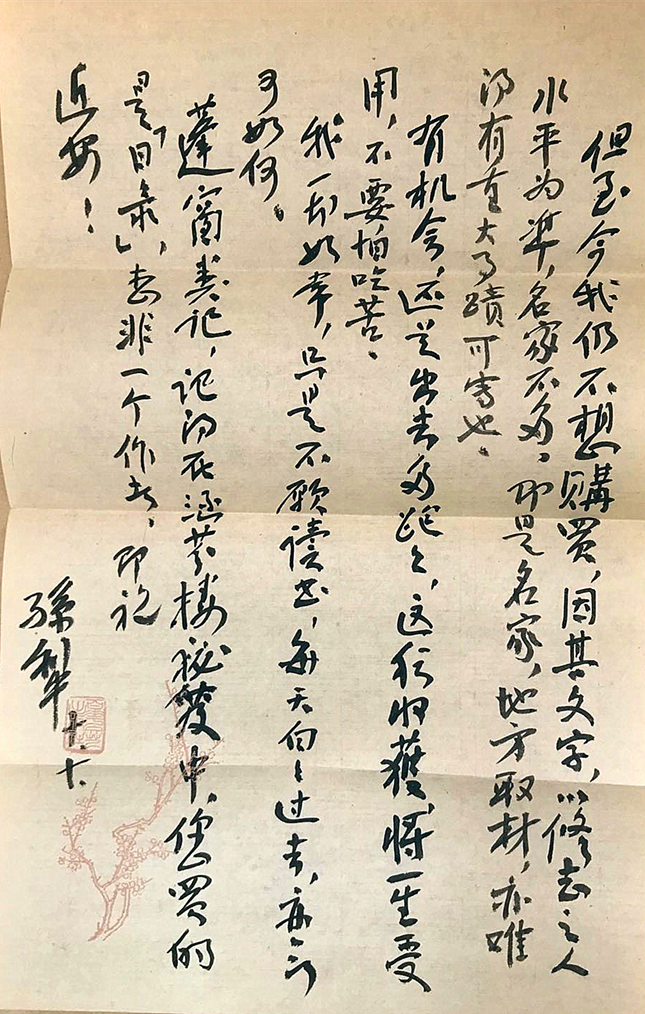 但至今我仍不想購买，因其文字，以修志之人
水平为準，名家不多，即是名家，地方取材，亦难
得有重大事蹟可写也。
有机会，还是出去多跑跑，这行收獲，将一生受
用，不要怕吃苦。
我一切如常，只是不愿读书，每天白白过去，无
可如何。
蓬窗类记，记得在涵芬楼秘笈中，您买的
是「目录」，恐非一个作者，即祝
近安！
孫犁
十.十.